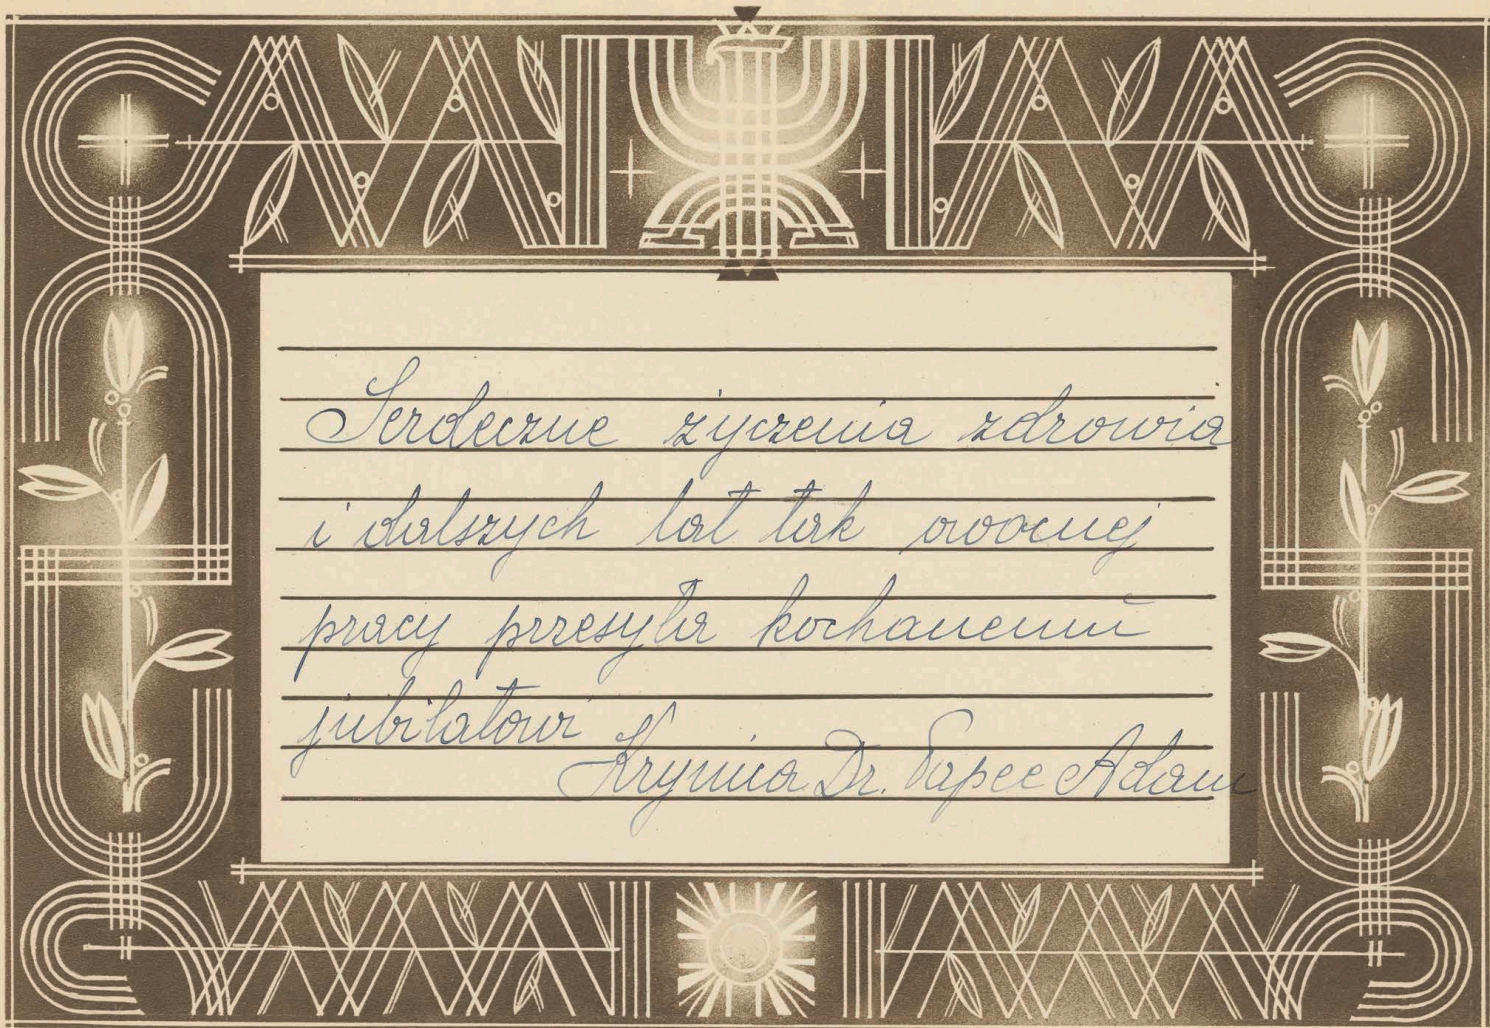 Serdeczne życzenia zdrowia
i dalszych lat tak owocnej
pracy przesyła kochanemu
jubilatowi
Krynica Dr. Papee Adam